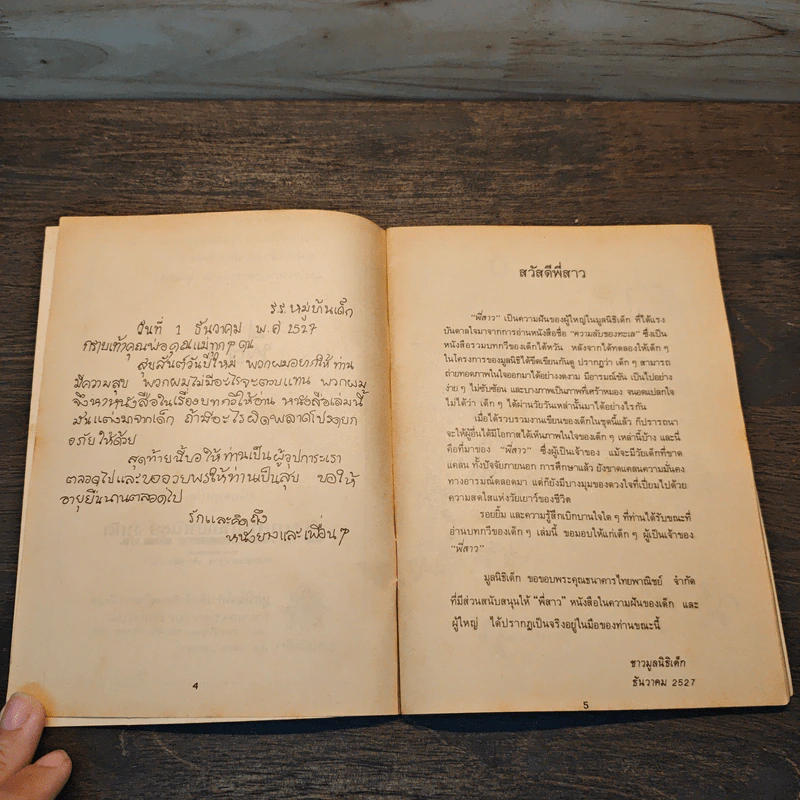 ร.ร. หมู่บ้านเด็ก
วันที่ 1 ธันวาคม พ.ศ 2527
กราบเท้าคุณพ่อคุณแม่ทุกๆคน
สุขสันต์วันปีใหม่ พวกผมอยากให้ท่าน
มีความสุข พวกผมไม่มีอะไรจะตอบแทน พวกผม
จึงหาหนังสือในเรื่องบทกวีให้อ่าน หนังสือเล่มนี้
มันแต่งมาจากเด็ก ถ้ามีอะไรผิดพลาดโปรดยก
อภัยให้ด้วย
สุดท้ายนี้ขอให้ท่านเป็นผู้อุปการะเรา
ตลอดไปและขออวยพรให้ท่านเป็นสุข ขอให้
อายุยืนนานตลอดไป
รักและคิดถึง
หนังยางและเพื่อนๆ
4
สวัสดีพี่สาว
"พี่สาว" เป็นความฝันของผู้ใหญ่ในมูลนิธิเด็ก ที่ได้แรง
บันดาลใจมาจากการอ่านหนังสือชื่อ "ความลับของทะเล" ซึ่งเป็น
หนังสือรวมบทกวีของเด็กไต้หวัน หลังจากได้ทดลองให้เด็ก ๆ
ในโครงการของมูลนิธิได้ขีดเขียนกันดู ปรากฏว่า เด็ก ๆ สามารถ
ถ่ายทอดภาพในใจออกมาได้อย่างงดงาม มีอารมณ์ขัน เป็นไปอย่าง
ง่าย ๆ ไม่ซับซ้อน และบางภาพเป็นภาพที่เศร้าหมอง จนอดแปลกใจ
ไม่ได้ว่า เด็ก ๆ ได้ผ่านวัยวันเหล่านั้นมาได้อย่างไรกัน
เมื่อได้รวบรวมงานเขียนของเด็กในชุดนี้แล้ว ก็ปรารถนา
จะให้ผู้อื่นได้มีโอกาสได้เห็นภาพในใจของเด็ก ๆ เหล่านี้บ้าง และนี่
คือที่มาของ "พี่สาว" ซึ่งผู้เป็นเจ้าของ แม้จะมีวัยเด็กที่ขาด
แคลน ทั้งปัจจัยภายนอก การศึกษาแล้ว ยังขาดแคลนความมั่นคง
ทางอารมณ์ตลอดมา แต่ก็ยังมีบางมุมของดวงใจที่เปี่ยมไปด้วย
ความสดใสแห่งวัยเยาว์ของชีวิต
รอยยิ้ม และความรู้สึกเบิกบานใจใด ๆ ที่ท่านได้รับขณะที่
อ่านบทกวีของเด็ก ๆ เล่มนี้ ขอมอบให้แก่เด็ก ๆ ผู้เป็นเจ้าของ
"พี่สาว"
มูลนิธิเด็ก ขอขอบพระคุณธนาคารไทยพาณิชย์ จำกัด
ที่มีส่วนสนับสนุนให้ "พี่สาว" หนังสือในความฝันของเด็ก และ
ผู้ใหญ่ ได้ปรากฏเป็นจริงอยู่ในมือของท่านขณะนี้
ชาวมูลนิธิเด็ก
ธันวาคม 2527
5